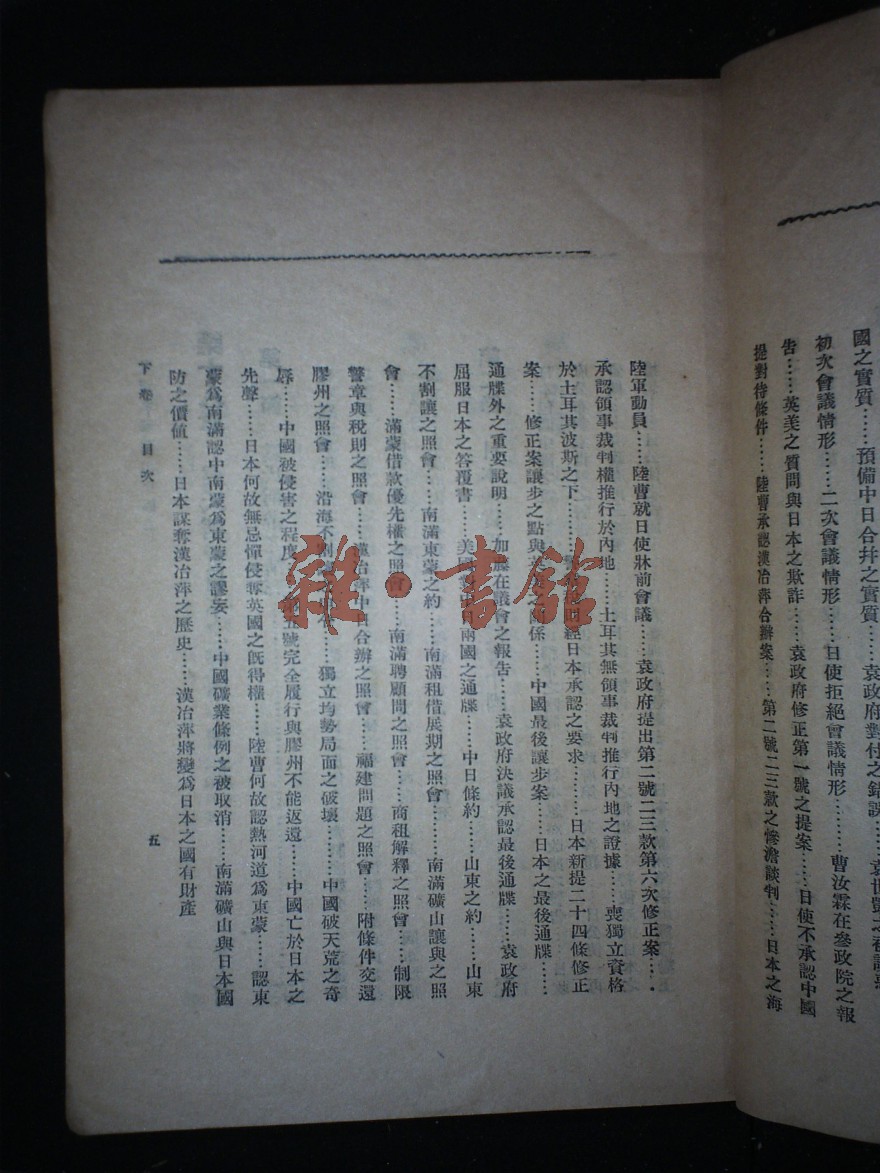 國之實質……預備中日合幷之實質……袁政府對付之錯誤……袁世凱之
初次會議情形……二次會議情形……日使拒絕會議情形……曹汝霖在參政院之報
告……英美之質問與日本之欺詐……袁政府修正第一號之提案……日使不承認中國
提對待條件……陸曹承認漢冶萍合辦案……第二號二三款之慘澹談判……日本之海
陸軍動員……陸曹就日使牀前會議……袁政府提出第二號二三款第六次修正案……
承認領事裁判權推行於內地……土耳其無領事裁判推行內地之證據……喪獨立資格
於土耳其波斯之下……經日本承認之要求……日本新提二十四條修正
案……修正案讓步之點與英美之關係……中國最後讓步案……日本之最後通牒……
通牒外之重要說明……加藤在議會之報告……袁政府決議承認最後通牒……袁政府
屈服日本之答覆書……美國對中日兩國之通牒……中日條約……山東之約……山東
不割讓之照會……南滿東蒙之約……南滿租借展期之照會……南滿礦山讓與之照
會……滿蒙借款優先權之照會……南滿聘顧問之照會……商租解釋之照會……制限
警章與稅則之照會……漢冶萍中日合辦之照會……福建問題之照會……附條件交還
膠州之照會……沿海不割讓……獨立均勢局面之破壞……中國破天荒之奇
辱……中國被侵害之程度……第五號完全履行與膠州不能返還……中國亡於日本之
先聲……日本何故無忌憚侵奪英國之既得權……陸曹何故認熱河道爲東蒙……認東
蒙爲南滿認中南蒙爲東蒙之謬妄……中國礦業條例之被取消……南滿礦山與日本國
防之價値……日本謀奪漢冶萍之歷史……漢冶萍將變爲日本之國有財產
下卷 目次
五
雜·書館